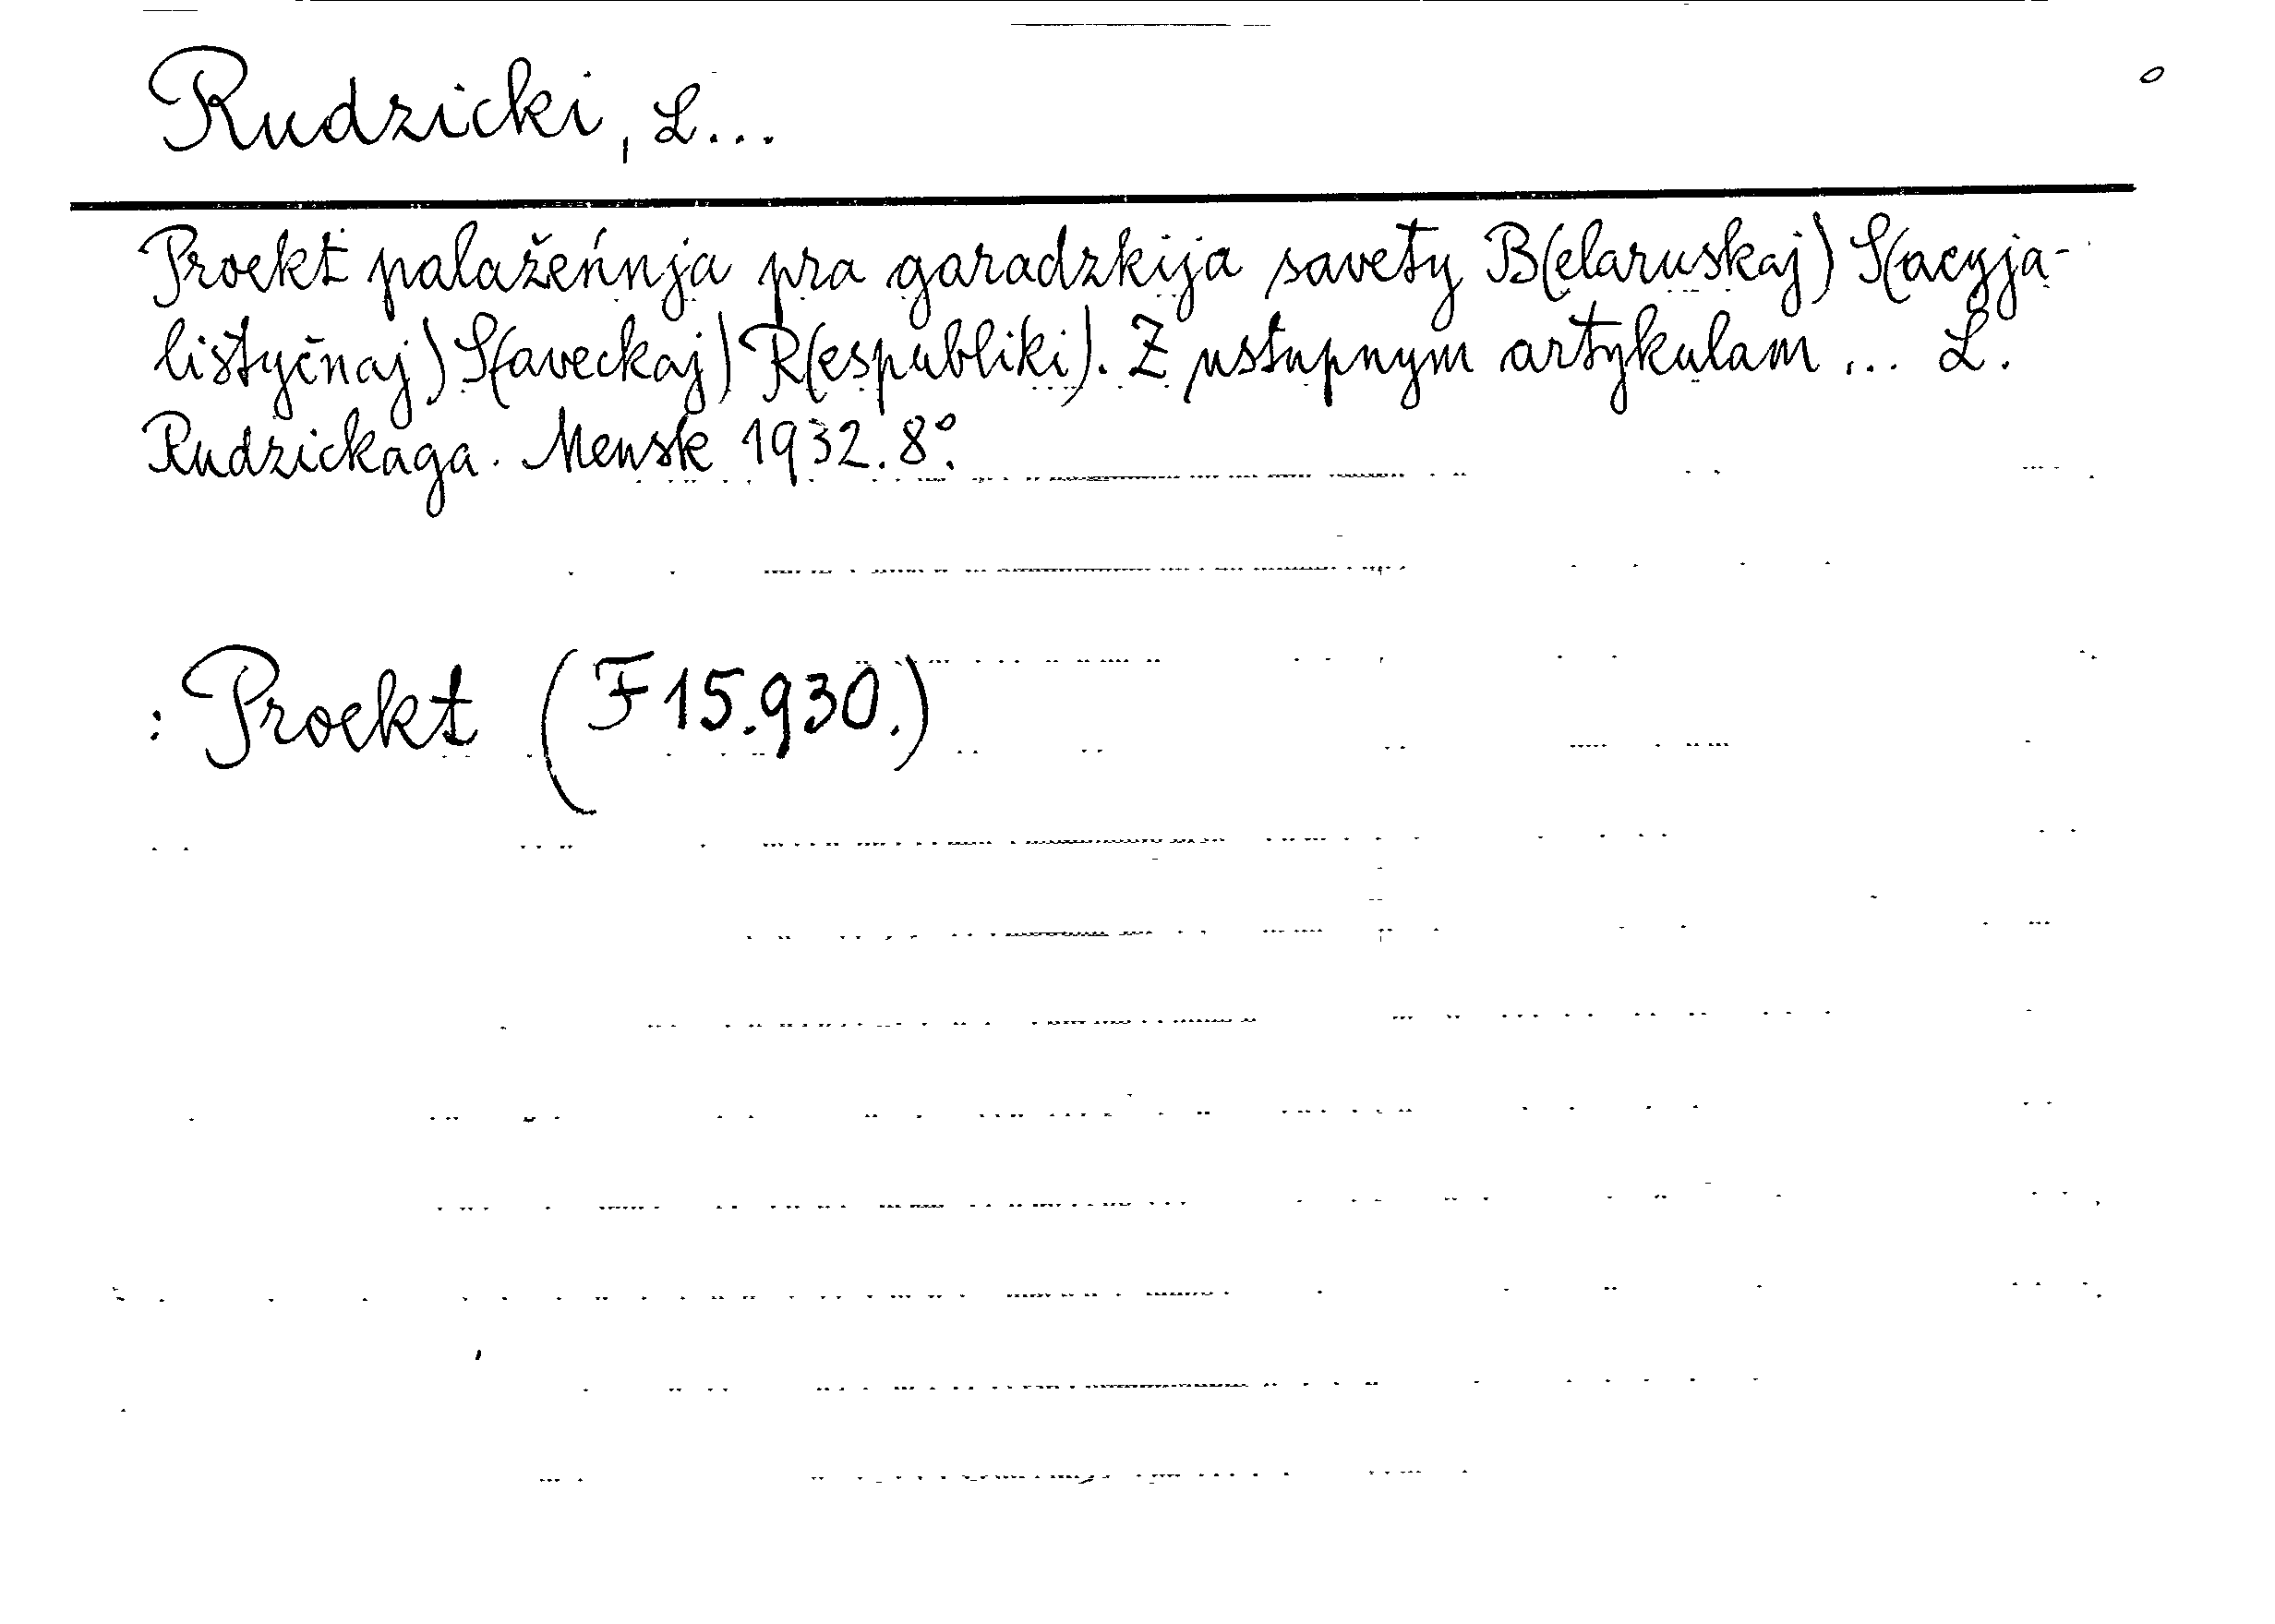 Rudzicki, L...
Proekt palažeńnja pra garadzkija savety B(elaruskaj) S(acyja-
listyčnaj) S(aveckaj) R(espubliki). Z ustupnym artykulam ... L.
Rudzickaga. Mensk 1932. 8°.
: Proekt (F 15.930.)